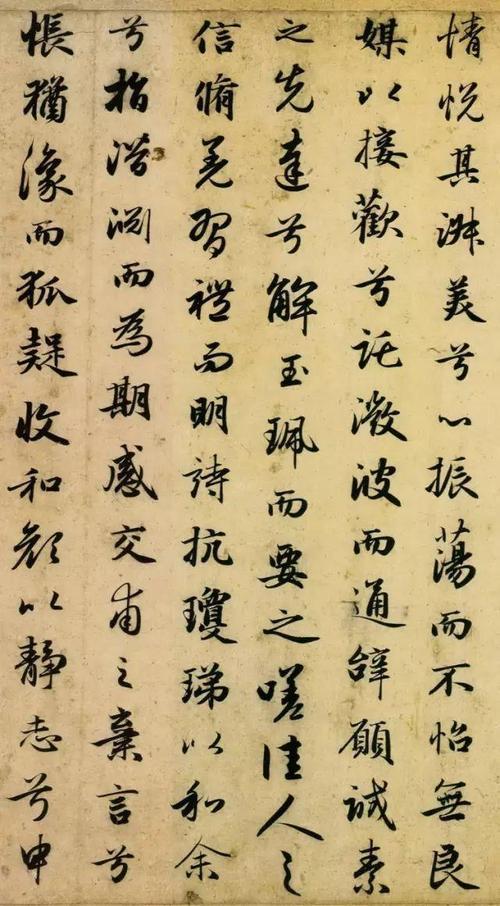 情悅其淑美兮心振蕩而不怡無良
媒以接歡兮託微波而通辭願誠素
之先達兮解玉珮而要之嗟佳人之
信脩羌習禮而明詩抗瓊珶以和余
兮指潛淵而為期感交甫之棄言兮
悵猶豫而狐疑收和顏以靜志兮申